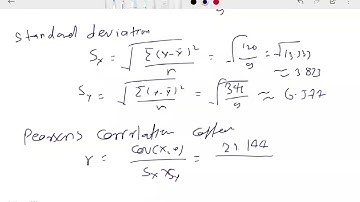 standard deviation
Sx = √Σ(x-x̄)²/n = √120/9 = √13.333
≈ 3.823
Sy = √Σ(y-ȳ)²/n = √341/9 ≈ 6.377
Pearsons correlation
r = cov(x,y)/Sx x Sy = 21.144